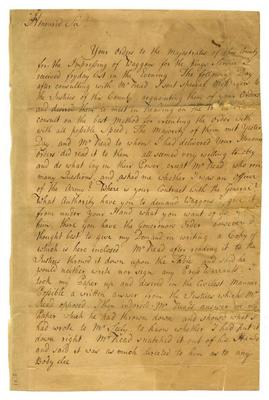 Honoured Sir
Your Orders to the Magistrates of this County
for the Impressing of Waggons for the Kings Service I
received fryday last in the Evening. The following Day
after consulting with Mr Read I sent Special Messengers to
the Justices of this County acquainting them of your Orders
and desired them to meet in Reading on
consult on the best Method for executing the Order with
with all possible Speed. The Majority of them met Yester
Day and Mr Read to whom I had delivered Your Honours
orders did read it to them all seemed very willing to obey
and to what lay in their Power except Mr Read who
many Questions, and asked me whether I was an Officer
of the Army? Where is your Contract with the General?
What Authority have you to demand Waggons? give it
from under Your Hand what you want of us to
him, Here you have the Governors Order however I
thought best to give my Demand in writing a Copy of
which is here inclosed Mr Read after reading it to the
Justices throwed it down upon the Table and said he
would neither write nor sign any Such Warrants. I
took my Paper up and desired in the Civilest Manner
Possible a written answer from the Justices which Mr
Read opposed. I then indorsed Mr Reads answer on my
Paper which he had thrown down and showed what I
had wrote to Mr Seely, to know whether I had put it
down right. Mr Read snatched it out of his Hands
and said it was as much directed to him as to any
Body else